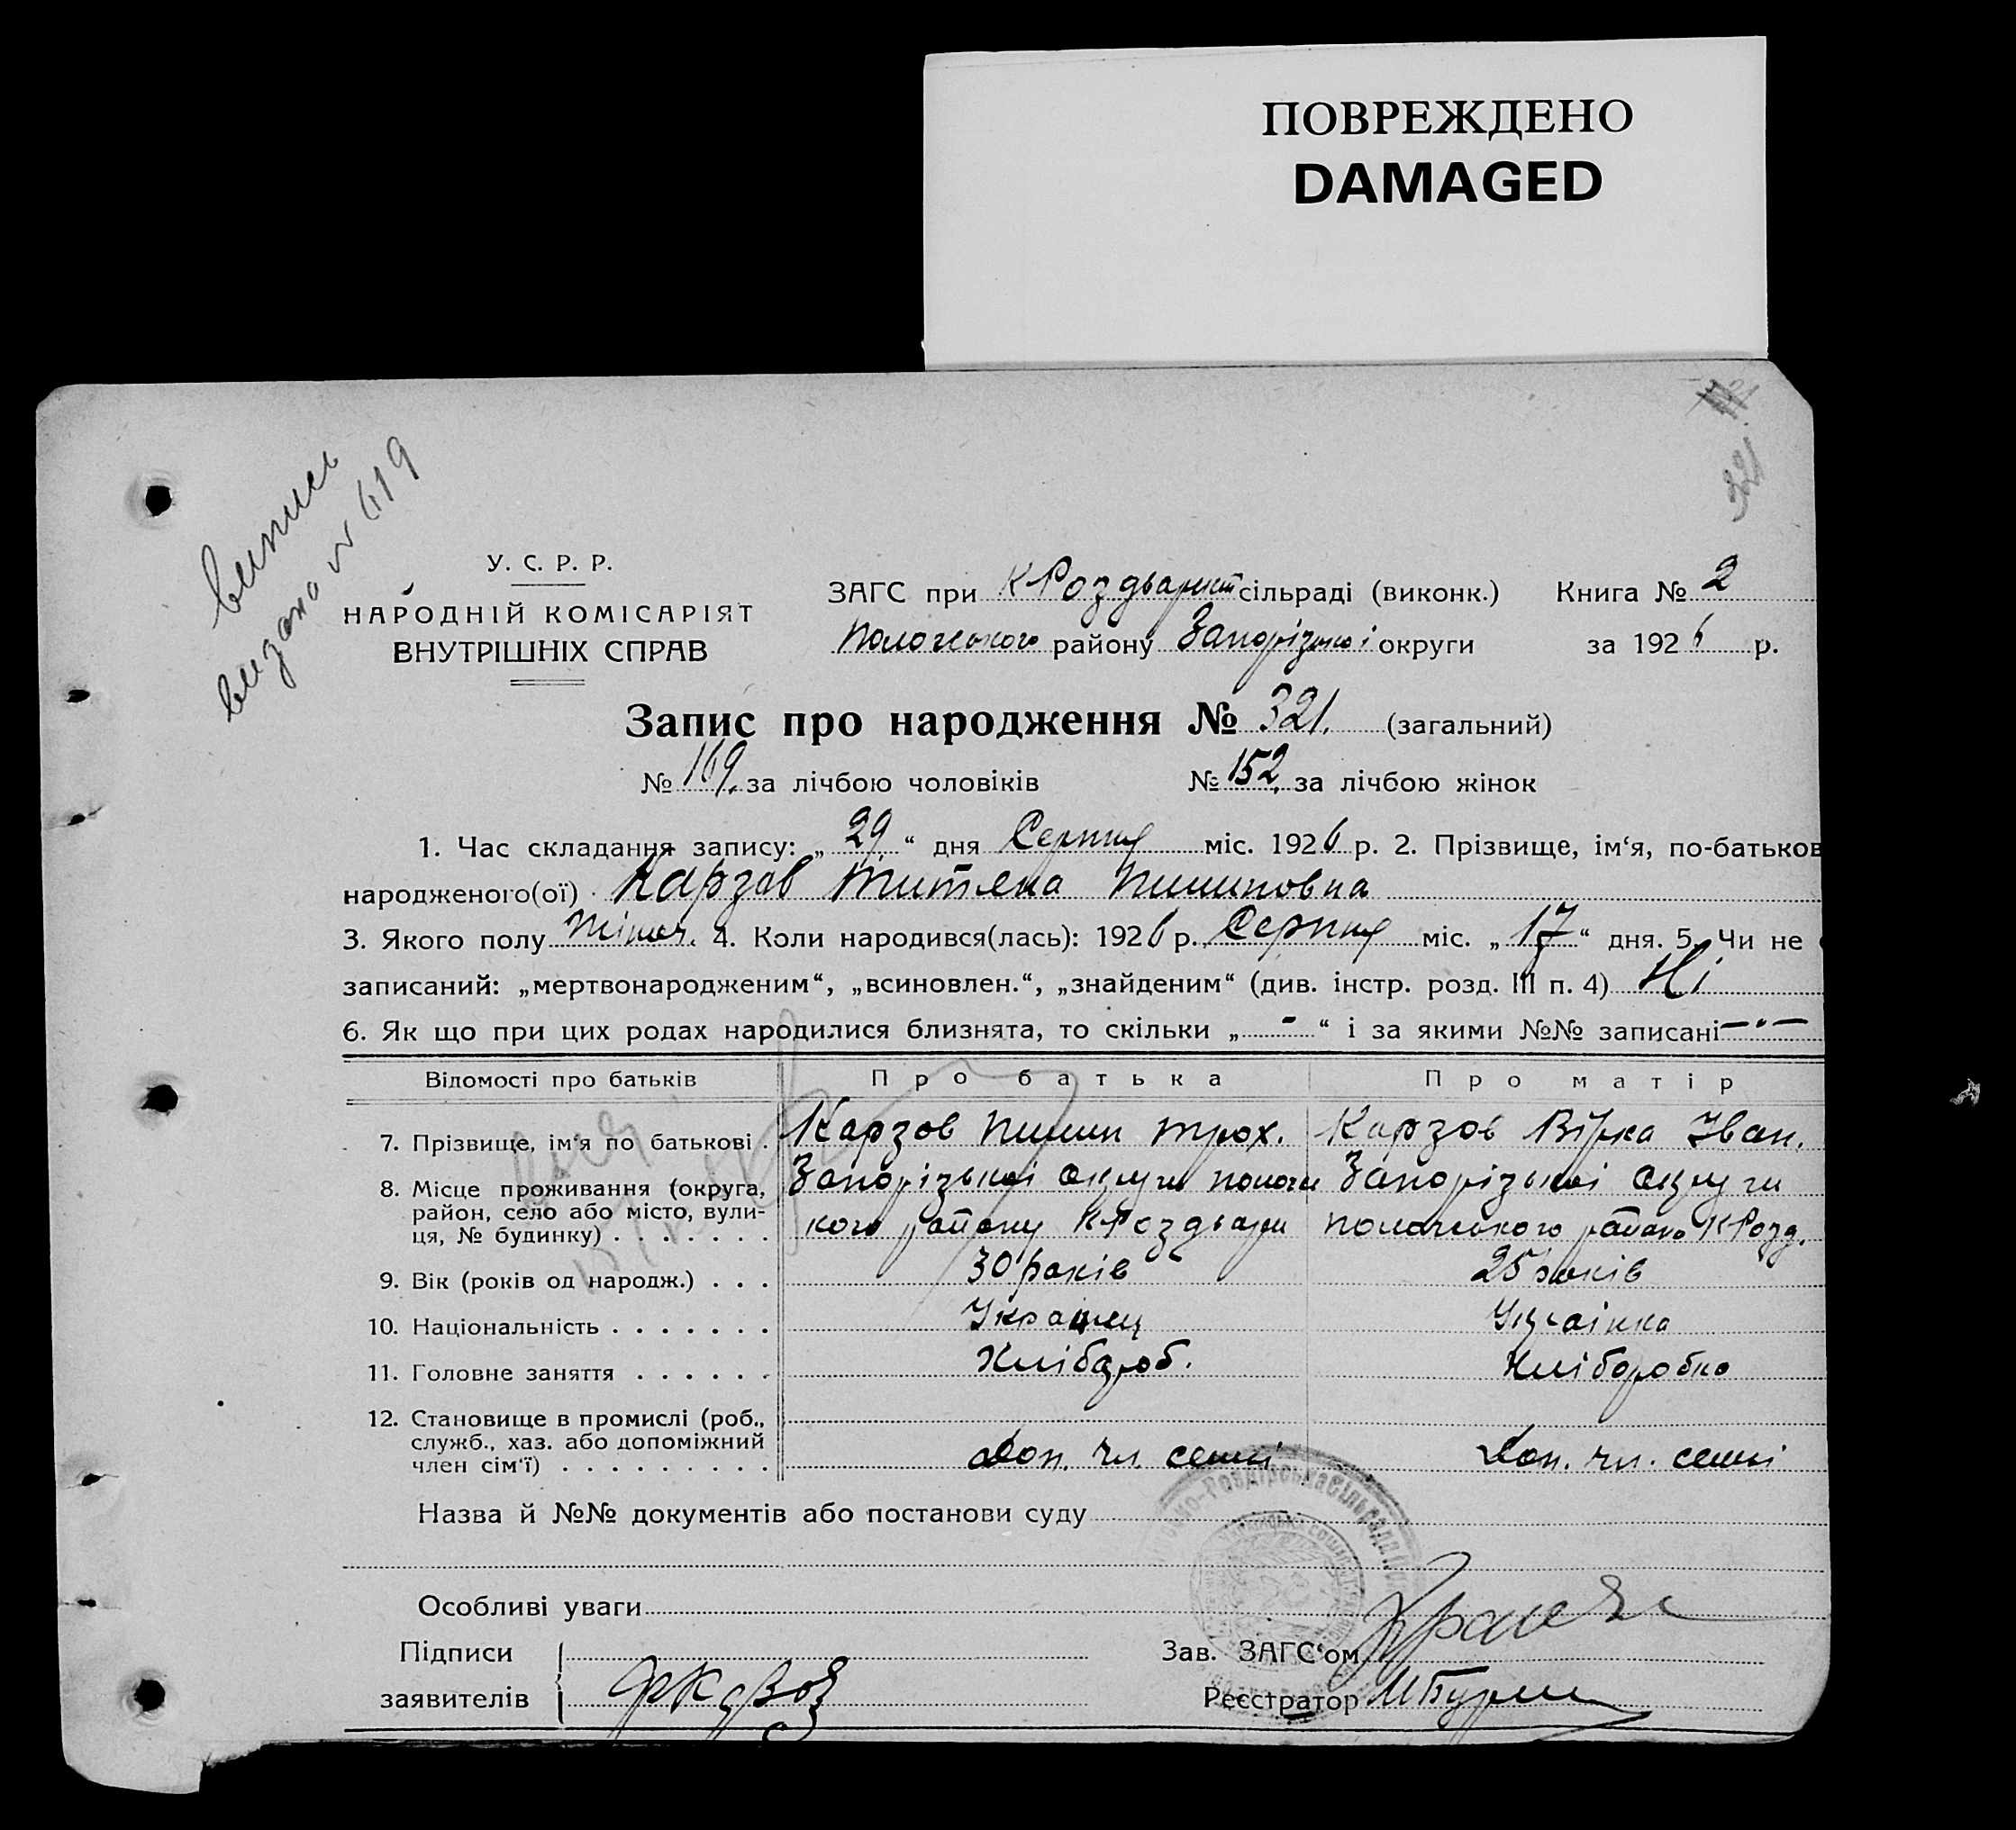 ПОВРЕЖДЕНО
DAMAGED
321
випись
видано № 619
У. С. Р. Р.
НАРОДНІЙ КОМІСАРІЯТ
ВНУТРІШНІХ СПРАВ
ЗАГС при К Роздварист сільраді (виконк.) Книга № 2
Пологського району Запорізької округи за 1926 р.
Запис про народження № 321. (загальний)
№ 169. за лічбою чоловіків № 152. за лічбою жінок
1. Час складання запису: „29“ дня Серпня міс. 1926 р. 2. Прізвище, ім‘я, по-батьков
народженого(ої) Карзов Титяна Пилиповна
3. Якого полу Жіноч. 4. Коли народився(лась): 1926 р. Серпня міс. „17“ дня. 5. Чи не
записаний: „мертвонародженим“, „всиновлен.“, „знайденим“ (див. інстр. розд. III п. 4) Ні
6. Як що при цих родах народилися близнята, то скільки „ - “ і за якими №№ записані —"—
Відомості про батьків Про батька Про матір
7. Прізвище, ім‘я по батькові . Карзов Пилип Трох. Карзов Вірка Іван.
8. Місце проживання (округа, Запорізької округи Пологс Запорізької округи
район, село або місто, вули-
ця, № будинку) . . . . . . . кого району К Роздвари Пологського району К Розд.
9. Вік (років од народж.) . . . 30 років 25 років
10. Національність . . . . . . . Українец Українка
11. Головне заняття . . . . . . Хлібороб. Хліборобка
12. Становище в промислі (роб.,
служб., хаз. або допоміжний
член сім‘ї) . . . . . . . . . Доп. чл. семьі Доп. чл. семьі
Назва й №№ документів або постанови суду
Особливі уваги
Підписи
заявителів ФКарзов
Зав. ЗАГС‘ом
Реєстратор